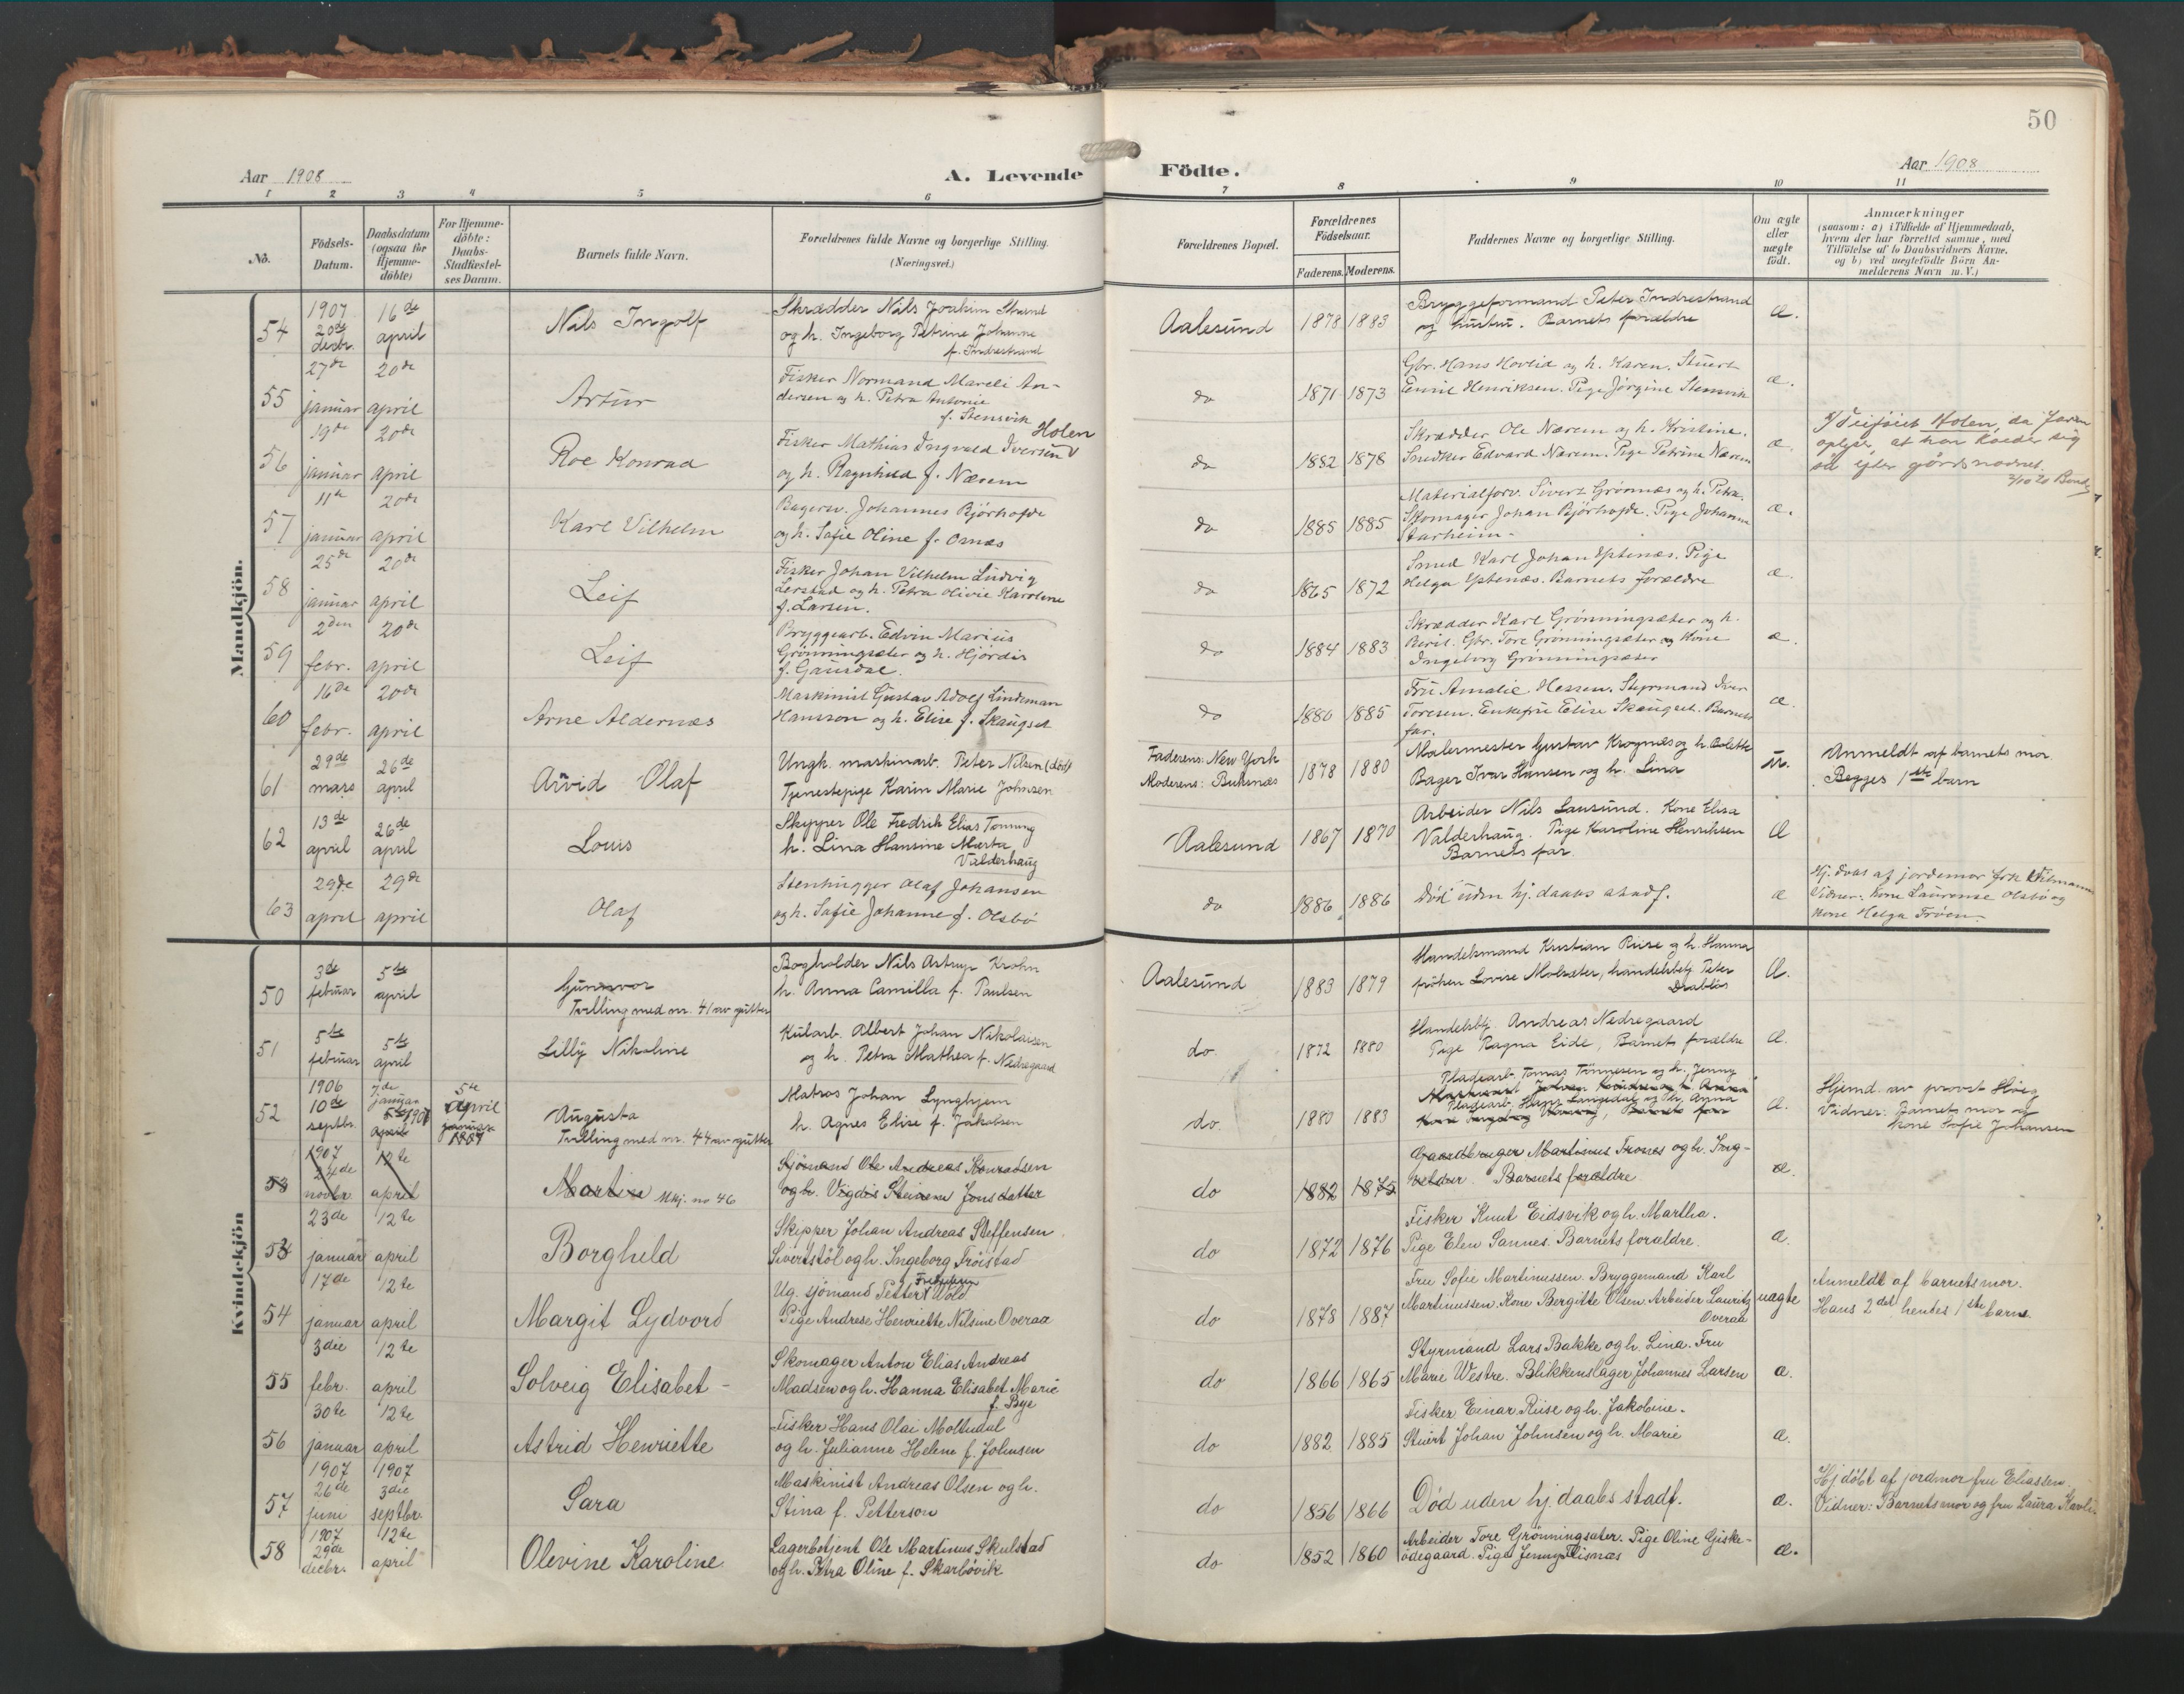 50
Aar 1908
A. Levende
Födte.
Aar 1908
1 2 3 4 5 6 7 8 9 10 11
No.
Födsels-Datum.
Daabsdatum (ogsaa for Hjemme-döbte)
For Hjemme-döbte: Daabs-Stadfæstel-ses Datum.
Barnets fulde Navn.
Forældrenes fulde Navne og borgerlige Stilling.
(Næringsvei.)
Forældrenes Bopæl.
Forældrenes Födselsaar.
Faderens. Moderens.
Faddernes Navne og borgerlige Stilling.
Om ægte eller uægte födt.
Anmærkninger
(saasom: a) i Tilfælde af Hjemmedaab,
hvem der har forrettet samme, med
Tilföielse af to Daabsvidners Navne,
og b) ved uægtefödte Börn An-
melderens Navn m. V.)
Mandkjön.
54 1907 20de decbr. 16de april Nils Ingolf
Skrædder Nils Joakim Strand
og h. Ingeborg Petrine Johanne
f. Indrestrand
Aalesund 1878 1883
Bryggeformand Peter Indrestrand
og hustru. Barnets forældre
æ.
55 27de januar 20de april Artur
Fisker Normand Mareli An-
dersen og h. Petra Antonie
f. Stensvik
do 1871 1873
Gbr. Hans Hovlid og h. Karen. Stuert
Emil Henriksen. Pige Jørgine Stensvik
æ.
56 19de januar 20de april Roe Konrad
Holen
Fisker Mathias Ingvald Iversen
og h. Ragnhild f. Nærem
do 1882 1878
Skrædder Ole Nærem og h. Kristine.
Snedker Edvard Nærem. Pige Petrine Nærem
æ.
Tilføiet Holen, da faren
oplyser, at han kalder sig
så efter gårdsnavnet.
57 11te januar 20de april Karl Vilhelm
Bagersv. Johannes Bjørhofde
og h. Sofie Oline f. Osnæs
do 1885 1885
Materialforv. Sivert Grønnæs og h. Petra.
Skomager Johan Bjørhofde. Pige Johanna
Starheim
æ.
58 25de januar 20de april Leif
Fisker Johan Vilhelm Ludvig
Lerstad og h. Petra Olivie Karoline
f. Larsen.
do 1865 1872
Smed Karl Johan Eptenæs. Pige
Helga Eptenæs. Barnets forældre
æ.
59 2den febr. 20de april Leif
Bryggearb. Edvin Marius
Grönningsæter og h. Hjördis
f. Gausdal.
do 1884 1883
Skrædder Karl Grönningsæter og h.
Beril. Gbr. Tore Grönningsæter og Kone
Ingeborg Grönningsæter
æ.
60 16de febr. 20de april Arne Aldernæs
Maskinist Gustav Adolf Lindeman
Hansson og h. Elise f. Skaugset
do 1880 1885
Fru Amalie Hessen. Styrmand Iver
Toresen. Enkefru Elise Skaugset. Barnets
far.
æ.
61 29de mars 26de april Arvid Olaf
Ungk. maskinarb. Peter Nilsen (död)
Tjenestepige Karin Marie Johnsen
Faderens: New York
Moderens: Buksnæs
1878 1880
Malermester Gustav Krognæs og h. Bolette
Bager Ivar Hansen og h. Lina
u.
Anmeldt af barnets mor.
Begges 1ste barn
62 13de april 26de april Louis
Skipper Ole Fredrik Elias Tonning
h. Lina Hansine Marta
Valderhaug
Aalesund 1867 1870
Arbeider Nils Lausund. Kone Elisa
Valderhaug. Pige Karoline Henriksen
Barnets far.
Æ
63 29de april 29de april Olaf
Stenhugger Olaf Johansen
og h. Sofie Johanne f. Olsbö
do 1886 1886
Död uden hj.daabs stadf.
æ
Hj. døbt af jordemor frk
Vidner: Kone Laurense Olsbö og
Kone Helga Tröen.
Kvindekjön
50 3de februar 5te april Gunnvor
Tvilling med nr. 41 av gutter
Bogholder Nils Astrup Krohn
h. Anna Camilla f. Paulsen
Aalesund 1883 1879
Handelsmand Kristian Riise og h. Hanna
fröken Lovise Molsæter, handelsbetj. Peter
Drabløs
Æ.
51 5te februar 5te april Lilly Nikoline
Kularb. Albert Johan Nikolaisen
og h. Petra Mathea f. Nedregaard
do 1872 1880
Handelsbtj. Andreas Nedregaard
Pige Ragna Eide, Barnets forældre
Æ.
52 1906 10de septbr. 7de januar 1907 5te april Augusta
Tvilling med nr. 44 av gutter
Matros Johan Lynghjem
h. Agnes Elise f. Jakobsen
do 1880 1883
Pladearb. Tomas Tönnesen og h. Jenny
Pladearb. Hans Langedal og h. Anna
Æ.
Hjemd. av provst Höeg
Vidner: Barnets mor og
kone Sofie Johansen
53 1907 24de novbr. 12te april Martine Mkj. no 46
Sjömand Ole Andreas Konradsen
og h. Vigdis Steinene Jonsdatter
do 1882 1875
Gaardbruger Martinus Trones og h. Ing-
Barnets forældre
æ.
53 23de januar 12te april Borghild
Skipper Johan Andreas Steffensen
Sivertstöl og h. Ingeborg Tröistad
do 1872 1876
Fisker Knut Eidsvik og h. Martha.
Pige Elen Sannes. Barnets forældre.
æ.
54 17de januar 12te april Margit Lydvord
Ug. sjömand Petter Fredriksen Wold
Pige Andrese Henriette Nilsine Overaa
do 1878 1887
Fru Sofie Martinussen. Bryggemand Karl
Martinussen. Kone Bergitte Olsen. Arbeider Lauritz
Overaa
uægte
Anmeldt af barnets mor.
Hans 2det hendes 1ste barn.
55 3die febr. 12te april Solveig Elisabet
Skomager Anton Elias Andreas
Madsen og h. Hanna Elisabet Marie
f. Bye
do 1866 1865
Styrmand Lars Bakke og h. Lina. Fru
Marie Westre. Blikkenslager Johannes Larsen
æ.
56 30te januar 12te april Astrid Henriette
Fisker Hans Olai Moltudal
og h. Julianne Helene f. Johnsen
do 1882 1885
Fisker Einar Riise og h. Jakobine.
Stuert Johan Johnsen og h. Marie
æ.
57 1907 26de juni 1907 3die septbr. Sara
Maskinist Andreas Olsen og h.
Stina f. Petterson
do 1856 1866
Död uden hj.daabs stadf.
æ.
Hj döbt af jordmor fru Eliassen.
Vidner: Barnets mor og fru Laura
58 1907 29de decbr. 12te april Olevine Karoline
Lagerbetjent Ole Martinus Skulstad
og h. Petra Oline f. Skarbövik
do 1852 1860
Arbeider Tore Grönningsæter. Pige Oline Giske-
ödegaard. Pige Jenny Risnæs
æ.